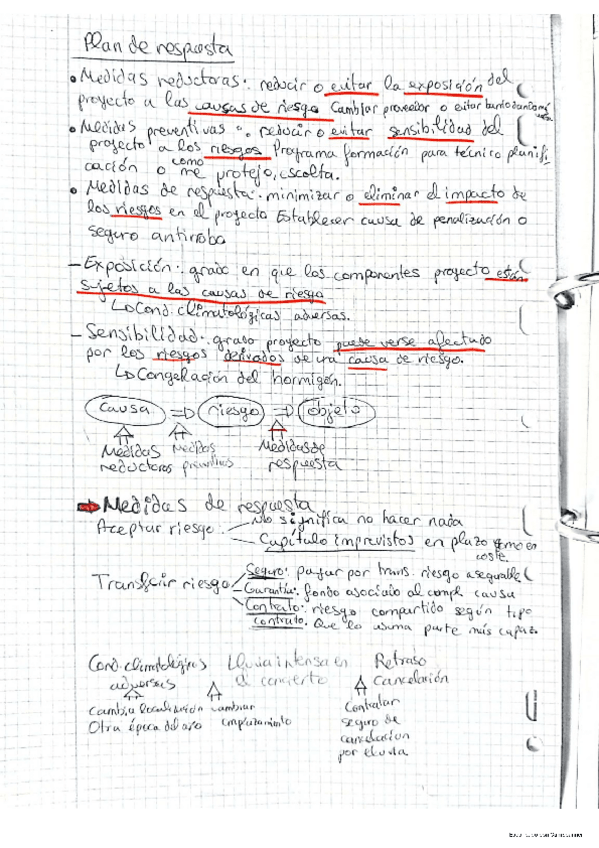 Plan de respuesta
• Medidas reductoras: reducir o evitar la exposición del
proyecto a las causas de riesgo Cambiar proveedor o evitar
• Medidas preventivas: reducir o evitar sensibilidad del
proyecto a los riesgos Programa formación para técnico planifi
cación o como me protejo, escolta.
• Medidas de respuesta: minimizar o eliminar el impacto de
los riesgos en el proyecto Establecer causa de penalización o
seguro antirrobo
- Exposición: grado en que los componentes proyecto están
sujetos a las causas de riesgo
↳ Cond. climatológicas adversas.
- Sensibilidad: grado proyecto puede verse afectado
por los riesgos derivados de una causa de riesgo.
↳ Congelación del hormigón.
causa ⇒ riesgo ⇒ objeto
Medidas reductoras
Medidas preventivas
Medidas de respuesta
➡ Medidas de respuesta
Aceptar riesgo
No significa no hacer nada
Capítulo imprevistos en plazo como en
coste.
Transferir riesgo
Seguro: pagar por trans. riesgo asegurable
Garantía: fondo asociado al compl. causa
Contrato: riesgo compartido según tipo
contrato. Que lo asuma parte más capaz
Cond. climatológicas adversas
Lluvia intensa en el concierto
Retraso Cancelación
Cambiar localización
Otra época del año
cambiar emplazamiento
Contratar
seguro de
cancelacion
por lluvia